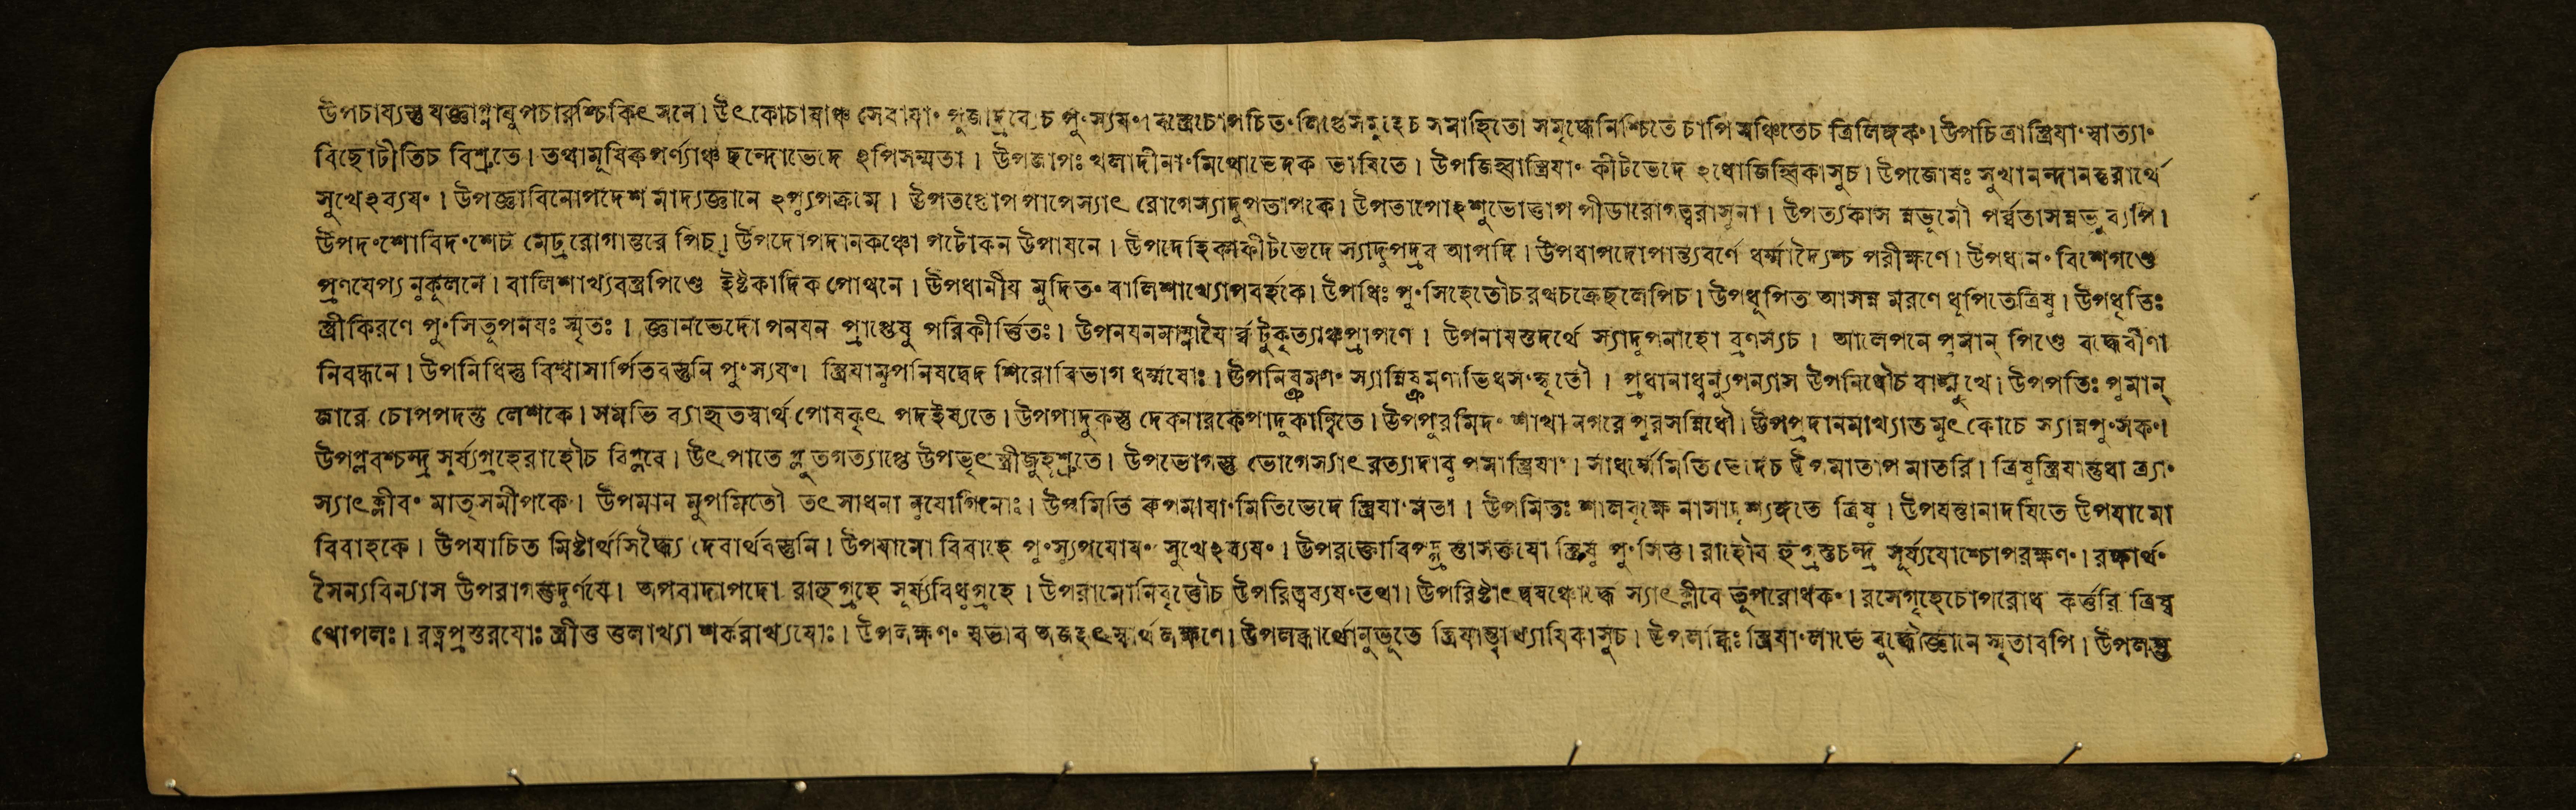 উপচায্যস্তু যজ্ঞাগ্নাবুপচারশ্চিকিৎসনে। উৎকোচাযাঞ্চ সেবাযাং পূজাদ্রব্যেচ পুংস্যযং। বস্ত্রেচোপচিতং লিপ্তেসমূহেচ সমাহিতো সমৃদ্ধেনিশ্চিতে চাপি সঞ্চিতেচ ত্রিলিঙ্গকং। উপচিত্রাস্ত্রিযাং স্বাত্যাং
বিছোটীতিচ বিশ্রুতে। তথামূষিকপর্ণ্যাঞ্চ ছন্দোভেদে ঽপিসম্মতা। উপজাপঃ খলাদীনাং মিথোভেদক ভাষিতে। উপজিহ্বাস্ত্রিযাং কীটভেদে ঽধোজিহ্বিকাসুচ। উপজোষঃ সুখানন্দানন্তরার্থে
সুখেঽব্যযং। উপজ্ঞাবিনোপদেশ মাদ্যজ্ঞানে ঽপ্যুপক্রমে। উপতপ্তোপপাপেস্যাৎ রোগেস্যাদুপতাপকে। উপতাপোঽশুভোত্তাপ পীডারোগত্বরাসুনা। উপত্যকাস ন্নভূমৌ পর্ব্বতাসন্নভূব্যপি।
উপদংশোবিদংশেচ মেঢ্ররোগান্তরে পিচ। উপদোপদানকঞ্চো পঢৌকন উপাযনে। উপদেহিকাকীটভেদে স্যাদুপদ্রব আপদি। উপধাপদোপান্ত্যবর্ণে ধর্ম্মাদ্যৈশ্চ পরীক্ষণে। উপধানং বিশেগণ্ডে
প্রণযেপ্য নুকূলনে। বালিশাখ্যবস্ত্রপিণ্ডে ইষ্টকাদিক পোথনে। উপধানীয মুদিতং বালিশাখ্যোপবর্হকে। উপধিঃ পুংসিহেতৌচ রথচক্রেছলেপিচ। উপধূপিত আসন্ন মরণে ধূপিতেত্রিষু। উপধৃত্তিঃ
স্ত্রীকিরণে পুংসিতূপনযঃ স্মৃতঃ। জ্ঞানভেদো পনযন প্রাপ্তেষু পরিকীর্ত্তিতঃ। উপনযনমাম্নাযৈ র্ব্বটুকৃত্যাঞ্চপ্রাপণে। উপনাযস্তদর্থে স্যাদুপনাহো ব্রণস্যচ। আলেপনে পুমান্ পিণ্ডে বদ্ধেবীণা
নিবদ্ধনে। উপনিধিস্তু বিশ্বাসার্পিতবস্তুনি পুংস্যযং। স্ত্রিযামুপনিষদ্বেদ শিরোবিভাগ ধর্ম্মযোঃ। উপনিষ্ক্রমণং স্যান্নিষ্ক্রমণাভিধসংস্কৃতৌ। প্রধানাধ্বন্যুপন্যাস উপনিধৌচ বাঙ্মুখে। উপপতিঃ পুমান্
জারে চোপপদন্তু লেশকে। সমভি ব্যাহৃতস্বার্থ পোষকৃৎ পদইষ্যতে। উপপাদুকস্তু দেবনারকেপাদুকান্বিতে। উপপুরমিদং শাখা নগরে পুরসন্নিধৌ। উপপ্রদানমাখ্যাত মুৎকোচে স্যান্নপুংসকং।
উপপ্লবশ্চন্দ্র সূর্য্যগ্রহেরাহৌচ বিপ্লবে। উৎপাতে প্লুতগত্যাপ্তে উপভৃৎস্ত্রীজুহূশ্রুতে। উপভোগস্তু ভোগেস্যাৎ রত্যাদাবুপমাস্ত্রিযাং। সাধর্ম্মমিতিভেদেচ উপমাতাপ মাতরি। ত্রিষুস্ত্রিযান্তুধা ত্র্যাং
স্যাৎ ক্লীবং মাতৃসমীপকে। উপমান মুপমিতৌ তৎ সাধনা নুযোগিনোঃ। উপমিতি রূপমাযাংমিতিভেদে স্ত্রিযাংমতা। উপমিতঃ শালবৃক্ষে নাসাদৃশ্যঙ্গতে ত্রিষু। উপযন্তানাদযিতে উপযামো
বিবাহকে। উপযাচিত মিষ্টার্থসিদ্ধ্যৈ দেবার্থবস্তুনি। উপযামো বিবাহে পুংস্যুপযোষং সুখেঽব্যযং। উপরক্তোবিপদ্গ্রস্তাসক্তযো স্ত্রিষু পুংসিত্ত। রাহৌব হুগ্রস্তচন্দ্র সূর্য্যযোশ্চোপরক্ষণং। রক্ষার্থং
সৈন্যবিন্যাস উপরাগস্তুদুর্ণযে। অপবাদাপদো রাহুগ্রহে সূর্য্যবিধুগ্রহে। উপরামোনিবৃত্তৌচ উপরিত্বব্যযংতথা। উপরিষ্টাৎ দ্বযঞ্চোর্দ্ধে স্যাৎক্লীবে তূপরোধকং। রসেগৃহেচোপরোধ কর্ত্তরি ত্রিষ্ব
থোপলঃ। রত্নপ্রস্তরযোঃ স্ত্রীত্ত ত্তলাখ্যা শর্করাখ্যযোঃ। উপলক্ষণং স্বভাব অজহৎস্বার্থলক্ষণে। উপলব্ধার্থোনুভূতে ত্রিযান্ত্বাখ্যাযিকাসুচ। উপলব্ধিঃ স্ত্রিযাংলাভে বুদ্ধৌজ্ঞানে স্মৃতাবপি। উপলস্তু